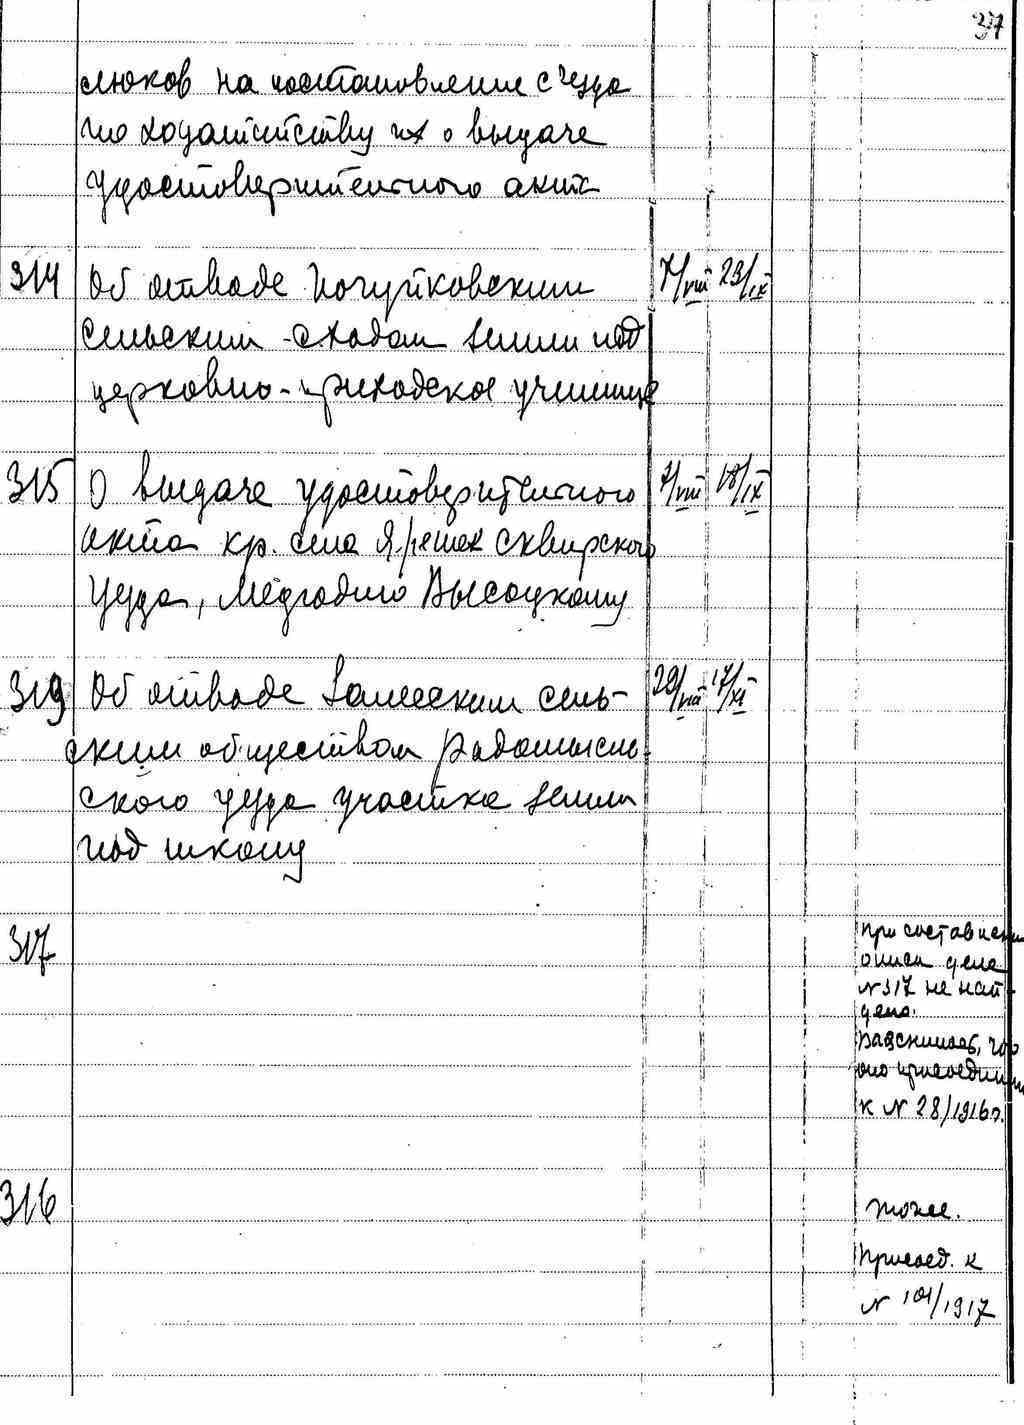 37
люков на постановление съезда
по ходатайству их о выдаче
удостоверительного акта
314 Об отводе Почуйковским 7/VIII 23/IX
сельским сходом земли под
церковно-приходское училище
315 О выдаче удостоверительного 7/VIII 18/IX
акта кр. села Ярешек Сквирского
уезда, Медгодию Высоцкому
319 Об отводе Залесским сель- 29/VIII 17/XI
ским обществом Радомысль-
ского уезда участка земли
под школу
317
При составлении
описи дело
№ 317 не най-
дено.
Выяснилось, что
оно присоединен
к № 28/1916г.
316
тоже.
Присоед. к
№ 101/1917